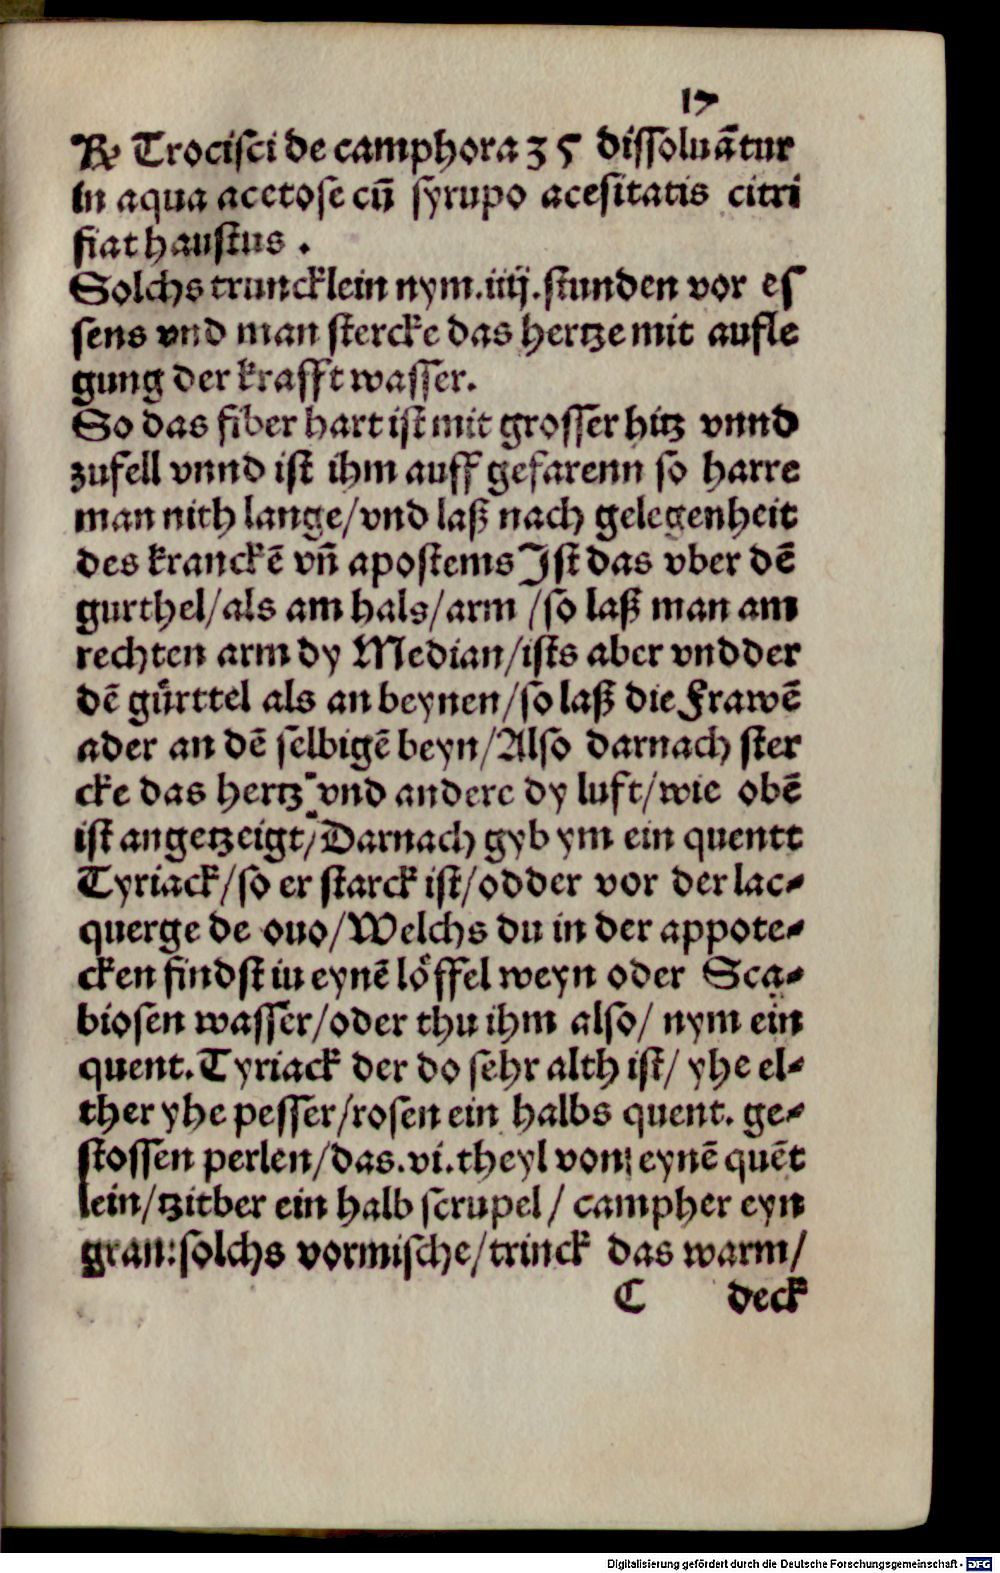 17
℞ Trocisci de camphora ʒ 5 dissoluãtur
in aqua acetose cũ syrupo acesitatis citri
fiat haustus .
Solchs truncklein nym.iiij.stunden vor es
sens vnd man stercke das hertze mit aufle
gung der krafft wasser.
So das fiber hart ist mit grosser hitz vnnd
zufell vnnd ist ihm auff gefarenn so harre
man nith lange/vnd laß nach gelegenheit
des kranckẽ vñ apostems Ist das vber dẽ
gurthel/als am hals/arm /so laß man am
rechten arm dy Median/ists aber vndder
dẽ gürttel als an beynen/so laß die Frawẽ
ader an dẽ selbigẽ beyn/Also darnach ster
cke das hertz vnd andere dy luft/wie obẽ
ist angetzeigt/Darnach gyb ym ein quentt
Tyriack/so er starck ist/odder vor der lac-
querge de ouo/Welchs du in der appote-
cken findst iu eynẽ löffel weyn oder Sca-
biosen wasser/oder thu ihm also/ nym ein
quent.Tyriack der do sehr alth ist/ yhe el-
ther yhe pesser/rosen ein halbs quent. ge-
stossen perlen/das.vi.theyl von eynẽ quẽt
lein/tzitber ein halb scrupel/ campher eyn
gran:solchs vormische/trinck das warm/
C deck
Digitalisierung gefördert durch die Deutsche Forschungsgemeinschaft - DFG